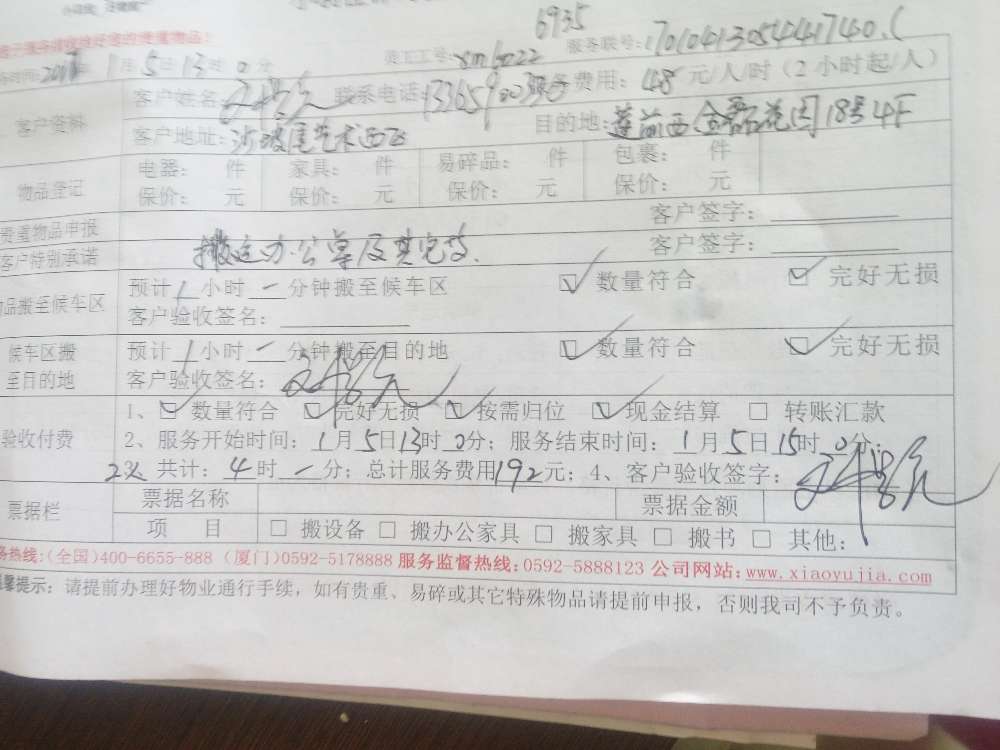 6935
员工工号: xm6022 服务联号: 17010413054441740.(
务时间: 1月5日13时0分
客户资料 客户姓名: 联系电话: 服务费用: 48元/人/时(2小时起/人)
客户地址: 沙坡尾艺术西区 目的地: 莲前西金磊花园18号4F
物品登记 电器: 件 家具: 件 易碎品: 件 包裹: 件
保价: 元 保价: 元 保价: 元 保价: 元
贵重物品申报 客户签字:
客户特别承诺 搬运办公桌及其它 客户签字:
物品搬至候车区 预计1小时一分钟搬至候车区 ☑ 数量符合 ☑ 完好无损
客户验收签名:
候车区搬至目的地 预计1小时一分钟搬至目的地 ☑ 数量符合 ☑ 完好无损
客户验收签名:
验收付费 1、☑ 数量符合 ☑ 完好无损 ☑ 按需归位 ☑ 现金结算 □ 转账汇款
2、服务开始时间: 1月5日13时0分; 服务结束时间: 1月5日15时0分;
2人 共计: 4时一分; 总计服务费用192元; 4、客户验收签字:
票据栏 票据名称 票据金额
项 目 □ 搬设备 □ 搬办公家具 □ 搬家具 □ 搬书 □ 其他:
务热线:(全国)400-6655-888 (厦门)0592-5178888 服务监督热线:0592-5888123 公司网站:www.xiaoyujia.com
温馨提示: 请提前办理好物业通行手续,如有贵重、易碎或其它特殊物品请提前申报,否则我司不予负责。